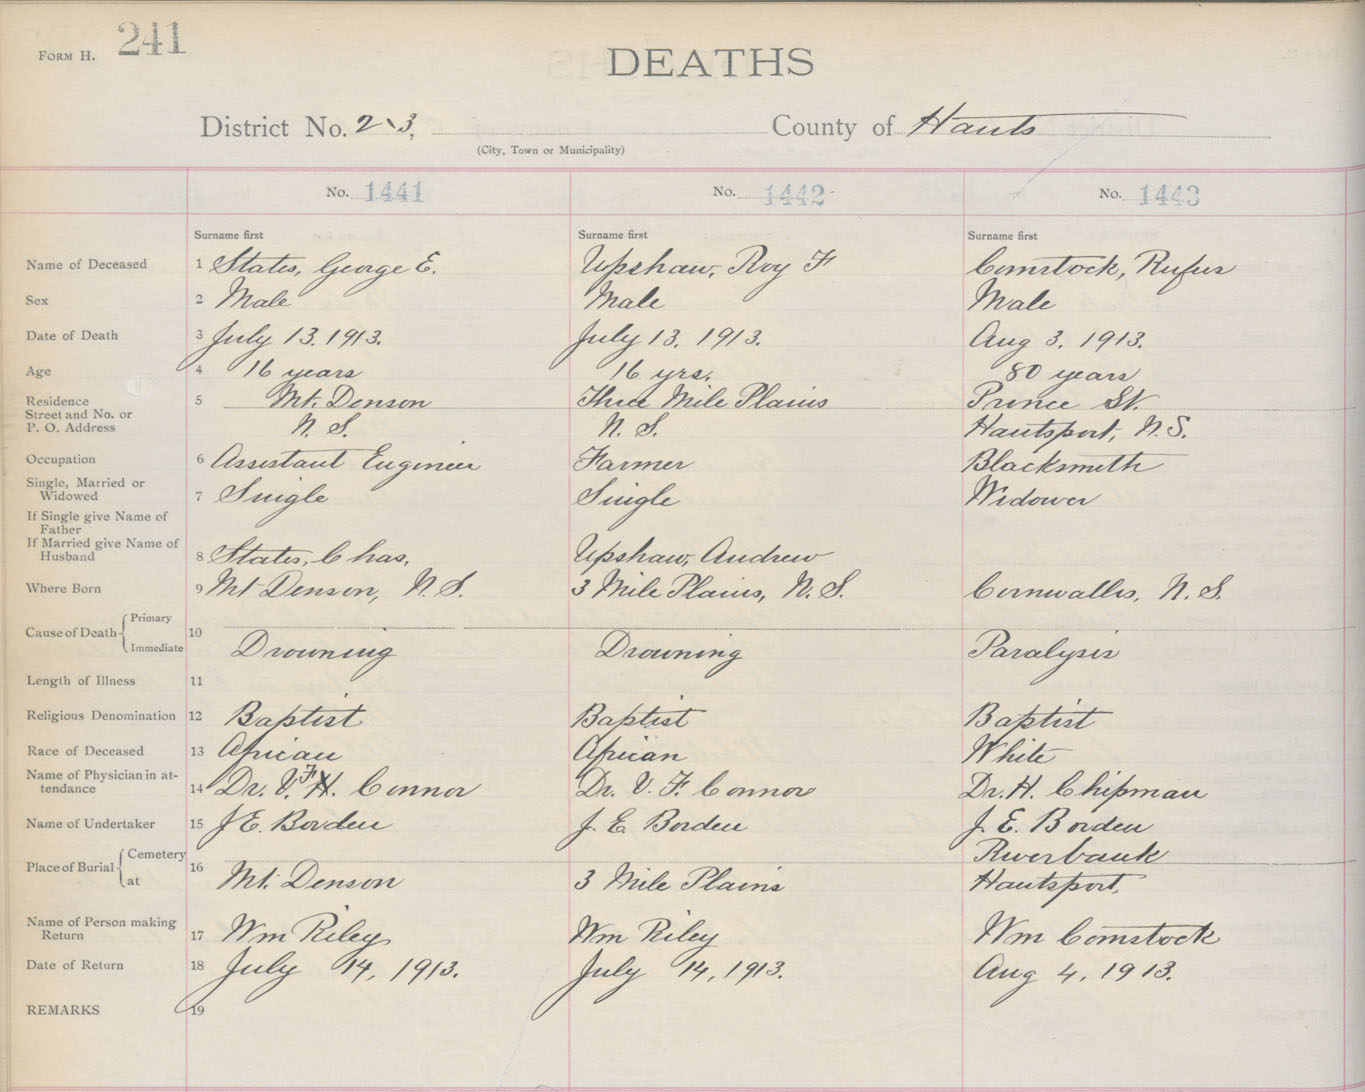 FORM H. 241
DEATHS
District No. 2-3, County of Hants
(City, Town or Municipality)
No. 1441 No. 1442 No. 1443
Surname first Surname first Surname first
Name of Deceased 1 States, George E. Upshaw, Roy F Comstock, Rufus
Sex 2 Male Male Male
Date of Death 3 July 13. 1913. July 13. 1913. Aug 3. 1913.
Age 4 16 years 16 yrs. 80 years
Residence 5 Mt. Denson Three Mile Plains Prince St.
Street and No. or
P. O. Address N. S. N. S. Hantsport, N.S.
Occupation 6 Assistant Engineer Farmer Blacksmith
Single, Married or
Widowed 7 Single Single Widower
If Single give Name of
Father
If Married give Name of
Husband 8 States, Chas. Upshaw, Andrew
Where Born 9 Mt Denson, N.S. 3 Mile Plains, N. S. Cornwallis, N. S.
Primary
Cause of Death 10
Immediate Drowning Drowning Paralysis
Length of Illness 11
Religious Denomination 12 Baptist Baptist Baptist
Race of Deceased 13 African African White
Name of Physician in at-
tendance 14 Dr. V. F H. Connor Dr. V. F. Connor Dr. H. Chipman
Name of Undertaker 15 J E. Borden J. E Borden J. E. Borden
Cemetery Riverbank
Place of Burial 16
at Mt. Denson 3 Mile Plains Hantsport,
Name of Person making
Return 17 Wm Riley Wm Riley Wm Comstock
Date of Return 18 July 14, 1913. July 14, 1913. Aug 4, 1913.
REMARKS 19